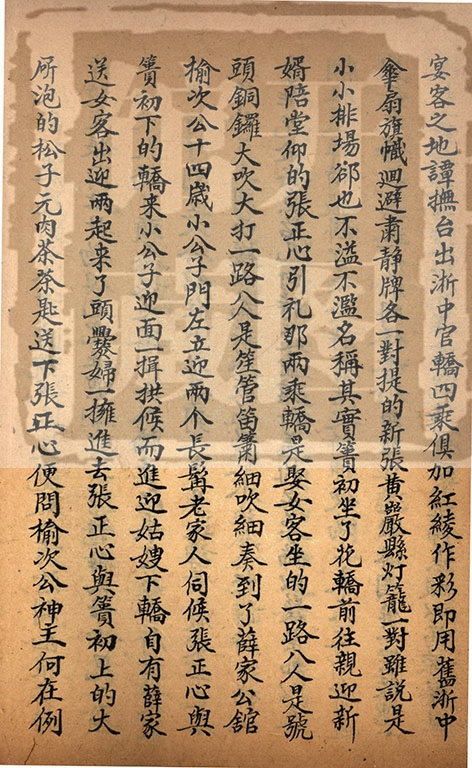 宴客之地譚撫台出淅中官轎四乘俱加紅綾作彩即用舊淅中
傘扇旗幟迴避肅静牌各一對提的新張黄嚴縣灯籠一對雖説是
小小排場郤也不溢不濫名稱其實簣初坐了花轎前往親迎新
婿陪堂仰的張正心引礼那兩乘轎是娶女客坐的一路八人是號
頭銅鑼大吹大打一路八人是笙管笛簫細吹細奏到了薛家公舘
榆次公十四歲小公子門左立迎两个長髯老家人伺候張正心與
簣初下的轎来小公子迎面一揖拱候而進迎姑嫂下轎自有薛家
送女客出迎兩起来了頭爨婦一擁進去張正心與簣初上的大
所泡的松子元肉茶茶匙送下張正心便問榆次公神主何在例